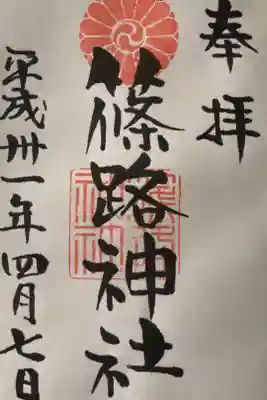 奉拝
篠路神社
平成卅一年四月七日